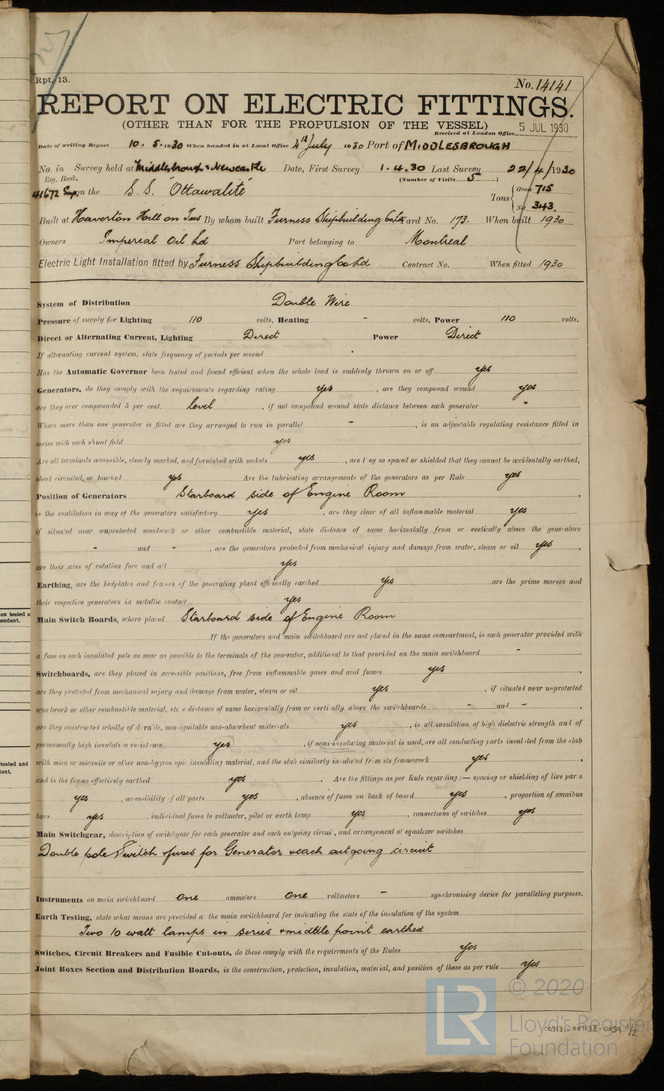 Rpt. 13.
No. 14141
REPORT ON ELECTRIC FITTINGS.
(OTHER THAN FOR THE PROPULSION OF THE VESSEL)
Received at London Office 5 JUL 1930
Date of writing Report 10. 5. 1930 When handed in at Local Office 4th July 1930 Port of MIDDLESBROUGH
No. in Survey held at Middlesbrough & Newcastle Date, First Survey 1. 4. 30 Last Survey 22/4/1930
Reg. Book. (Number of Visits 5)
41672 Sup. on the S.S. "Ottawalite" Tons { Gross 715
Net 343.
Built at Haverton Hill on Tees By whom built Furness Shipbuilding Co Ld Yard No. 173. When built 1930
Owners Imperial Oil Ld Port belonging to Montreal
Electric Light Installation fitted by Furness Shipbuilding Co Ld Contract No. When fitted 1930
System of Distribution Double Wire
Pressure of supply for Lighting 110 volts, Heating - volts, Power 110 volts.
Direct or Alternating Current, Lighting Direct Power Direct
If alternating current system, state frequency of periods per second -
Has the Automatic Governor been tested and found efficient when the whole load is suddenly thrown on or off yes
Generators, do they comply with the requirements regarding rating yes, are they compound wound yes
are they over compounded 5 per cent. level, if not compound wound state distance between each generator -
Where more than one generator is fitted are they arranged to run in parallel -, is an adjustable regulating resistance fitted in
series with each shunt field yes
Are all terminals accessible, clearly marked, and furnished with sockets yes, are they so spaced or shielded that they cannot be accidentally earthed,
short circuited, or touched yes Are the lubricating arrangements of the generators as per Rule yes
Position of Generators Starboard side of Engine Room
is the ventilation in way of the generators satisfactory yes, are they clear of all inflammable material yes
if situated near unprotected woodwork or other combustible material, state distance of same horizontally from or vertically above the generators
- and -, are the generators protected from mechanical injury and damage from water, steam or oil yes,
are their axes of rotation fore and aft yes
Earthing, are the bedplates and frames of the generating plant efficiently earthed yes are the prime movers and
their respective generators in metallic contact yes
Main Switch Boards, where placed Starboard side of Engine Room
If the generators and main switchboard are not placed in the same compartment, is each generator provided with
a fuse on each insulated pole as near as possible to the terminals of the generator, additional to that provided on the main switchboard -
Switchboards, are they placed in accessible positions, free from inflammable gases and acid fumes yes,
are they protected from mechanical injury and damage from water, steam or oil yes, if situated near unprotected
woodwork or other combustible material, state distance of same horizontally from or vertically above the switchboards - and -,
are they constructed wholly of durable, non-ignitable non-absorbent materials yes, is all insulation of high dielectric strength and of
permanently high insulation resistance yes, if semi-insulating material is used, are all conducting parts insulated from the slab
with mica or micanite or other non-hygroscopic insulating material, and the slab similarly insulated from its framework yes,
and is the frame effectively earthed yes. Are the fittings as per Rule regarding:— spacing or shielding of live parts
yes, accessibility of all parts yes, absence of fuses on back of board yes, proportion of omnibus
bars yes, individual fuses to voltmeter, pilot or earth lamp yes, connections of switches yes
Main Switchgear, description of switchgear for each generator and each outgoing circuit, and arrangement of equalizer switches
Double pole Switch & fuses for Generator & each outgoing circuit
Instruments on main switchboard One ammeters One voltmeters - synchronising device for paralleling purposes.
Earth Testing, state what means are provided at the main switchboard for indicating the state of the insulation of the system
Two 10 watt lamps in series & middle point earthed
Switches, Circuit Breakers and Fusible Cut-outs, do these comply with the requirements of the Rules yes
Joint Boxes Section and Distribution Boards, is the construction, protection, insulation, material, and position of these as per rule yes
LR
© 2020
Lloyd's Register
Foundation